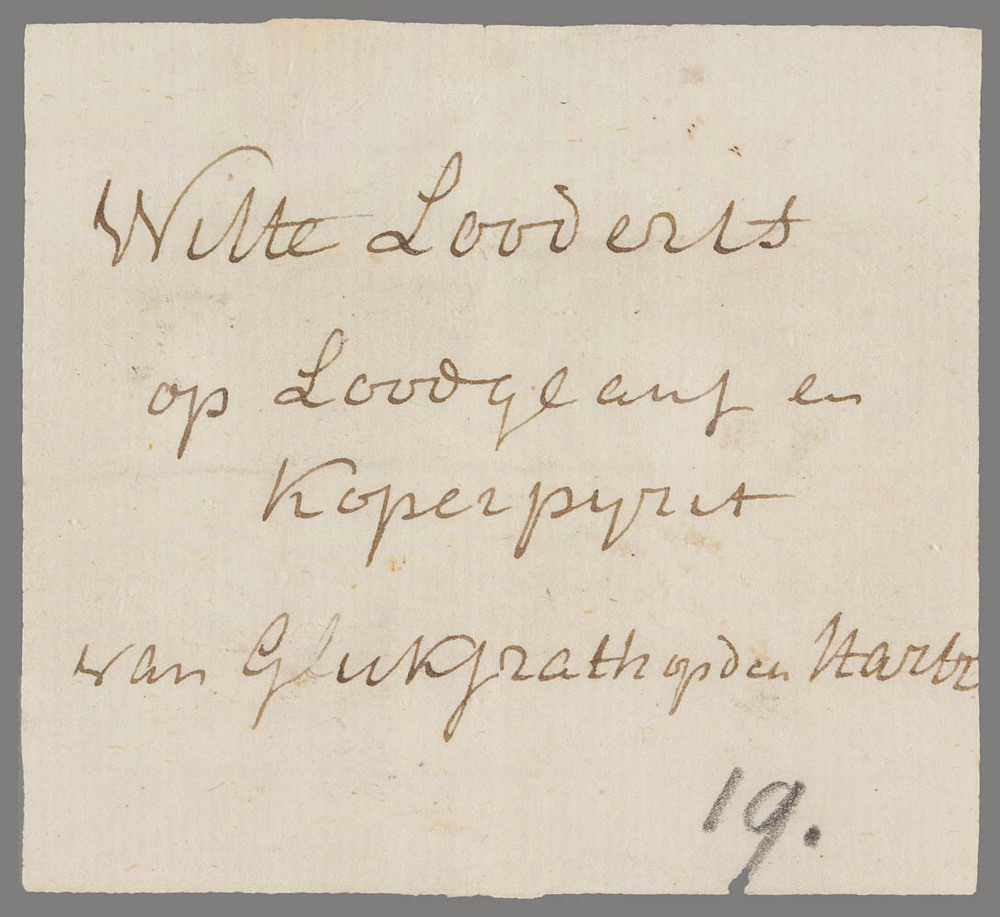 Witte Looderts
op Loodglanz en
Koperpyrit
van GlukGrath op den Hartz
19.